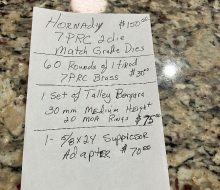 Hornady $150.00
7PRC 2 die
Match Grade Dies
60 Rounds of 1 fired
7PRC Brass $30.00
1 Set of Talley
30 mm Medium Height
20 MOA Rings $75.00
1- 5/8x24 Suppressor
Adapter $70.00